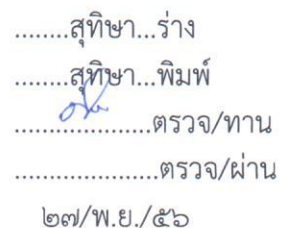 ........สุทิษา...ร่าง
........สุทิษา...พิมพ์
....................ตรวจ/ทาน
.....................ตรวจ/ผ่าน
๒๗/พ.ย./๕๖